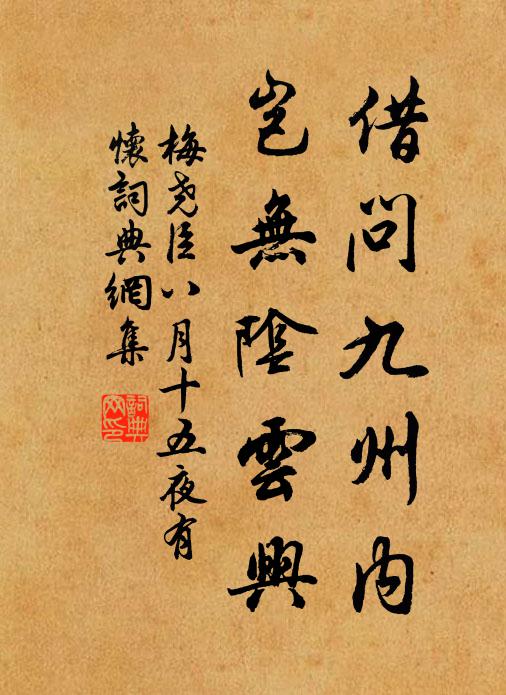 借問九州内
豈無陰雲興
梅堯臣八月十五夜有
懷詞典網集
詞典
网印